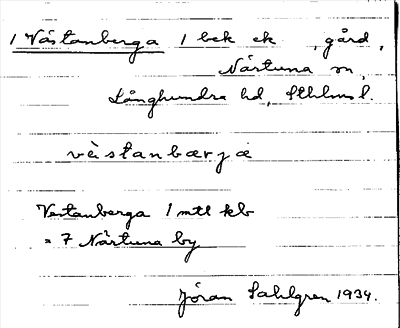 1 Västanberga 1 bek ek , gård ,
Närtuna sn,
Långhundra hd, Sthlms l.
västanbærja
Vestanberga 1 mtl kb
= 7 Närtuna by
Jöran Sahlgren 1934.